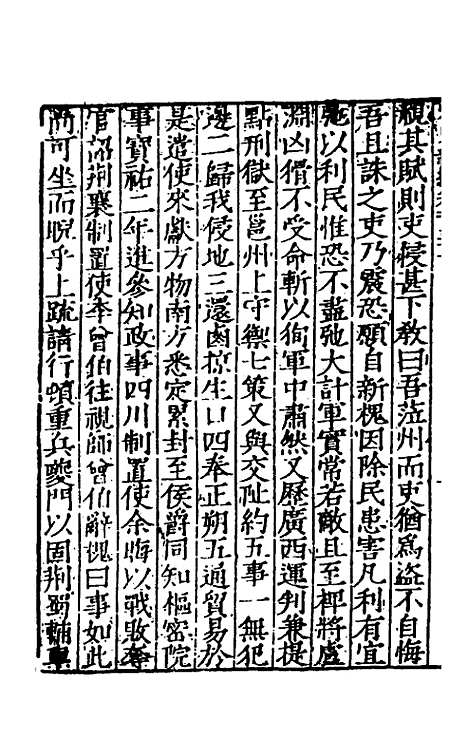 視其賦則吏侵甚下教曰吾蒞州而吏猶為盜不自悔
吾且誅之吏乃震恐願自新槐因除民患害凡利有宜
弛以利民惟恐不盡弛大計軍實常若敵且至裨將盧
淵凶猾不受命斬以徇軍中肅然又歷廣西運判兼提
點刑獄至邕州上守禦七策又與交阯約五事一無犯
邊二歸我侵地三還鹵掠生口四奉正朔五通貿易於
是遣使來獻方物南方悉定累封至侯爵同知樞密院
事寶祐二年進參知政事四川制置使余晦以戰敗奪
官詔荊襄制置使李曾伯往視師曾伯辭槐曰事如此
尚可坐而睨乎上疏請行頓重兵夔門以固荊蜀輔車